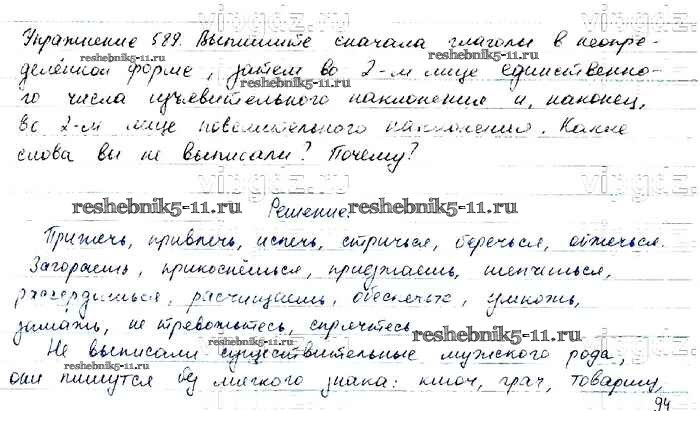 Упражнение 589. Выпишите сначала глаголы в неопре-
делённой форме, затем во 2-м лице единственно-
го числа изъявительного наклонения и, наконец,
во 2-м лице повелительного наклонения. Какие
слова вы не выписали? Почему?
reshebnik5-11.ru
Решение.
Прижечь, привлечь, испечь, стричься, беречься, отжечься.
Загораешь, прикоснёшься, приезжаешь,
рассердишься, расчищаешь, обеспечьте, умножь,
намажь, не тревожьтесь, спрячьтесь.
Не выписали существительные мужского рода,
они пишутся без мягкого знака: ключ, грач, товарищ,
94